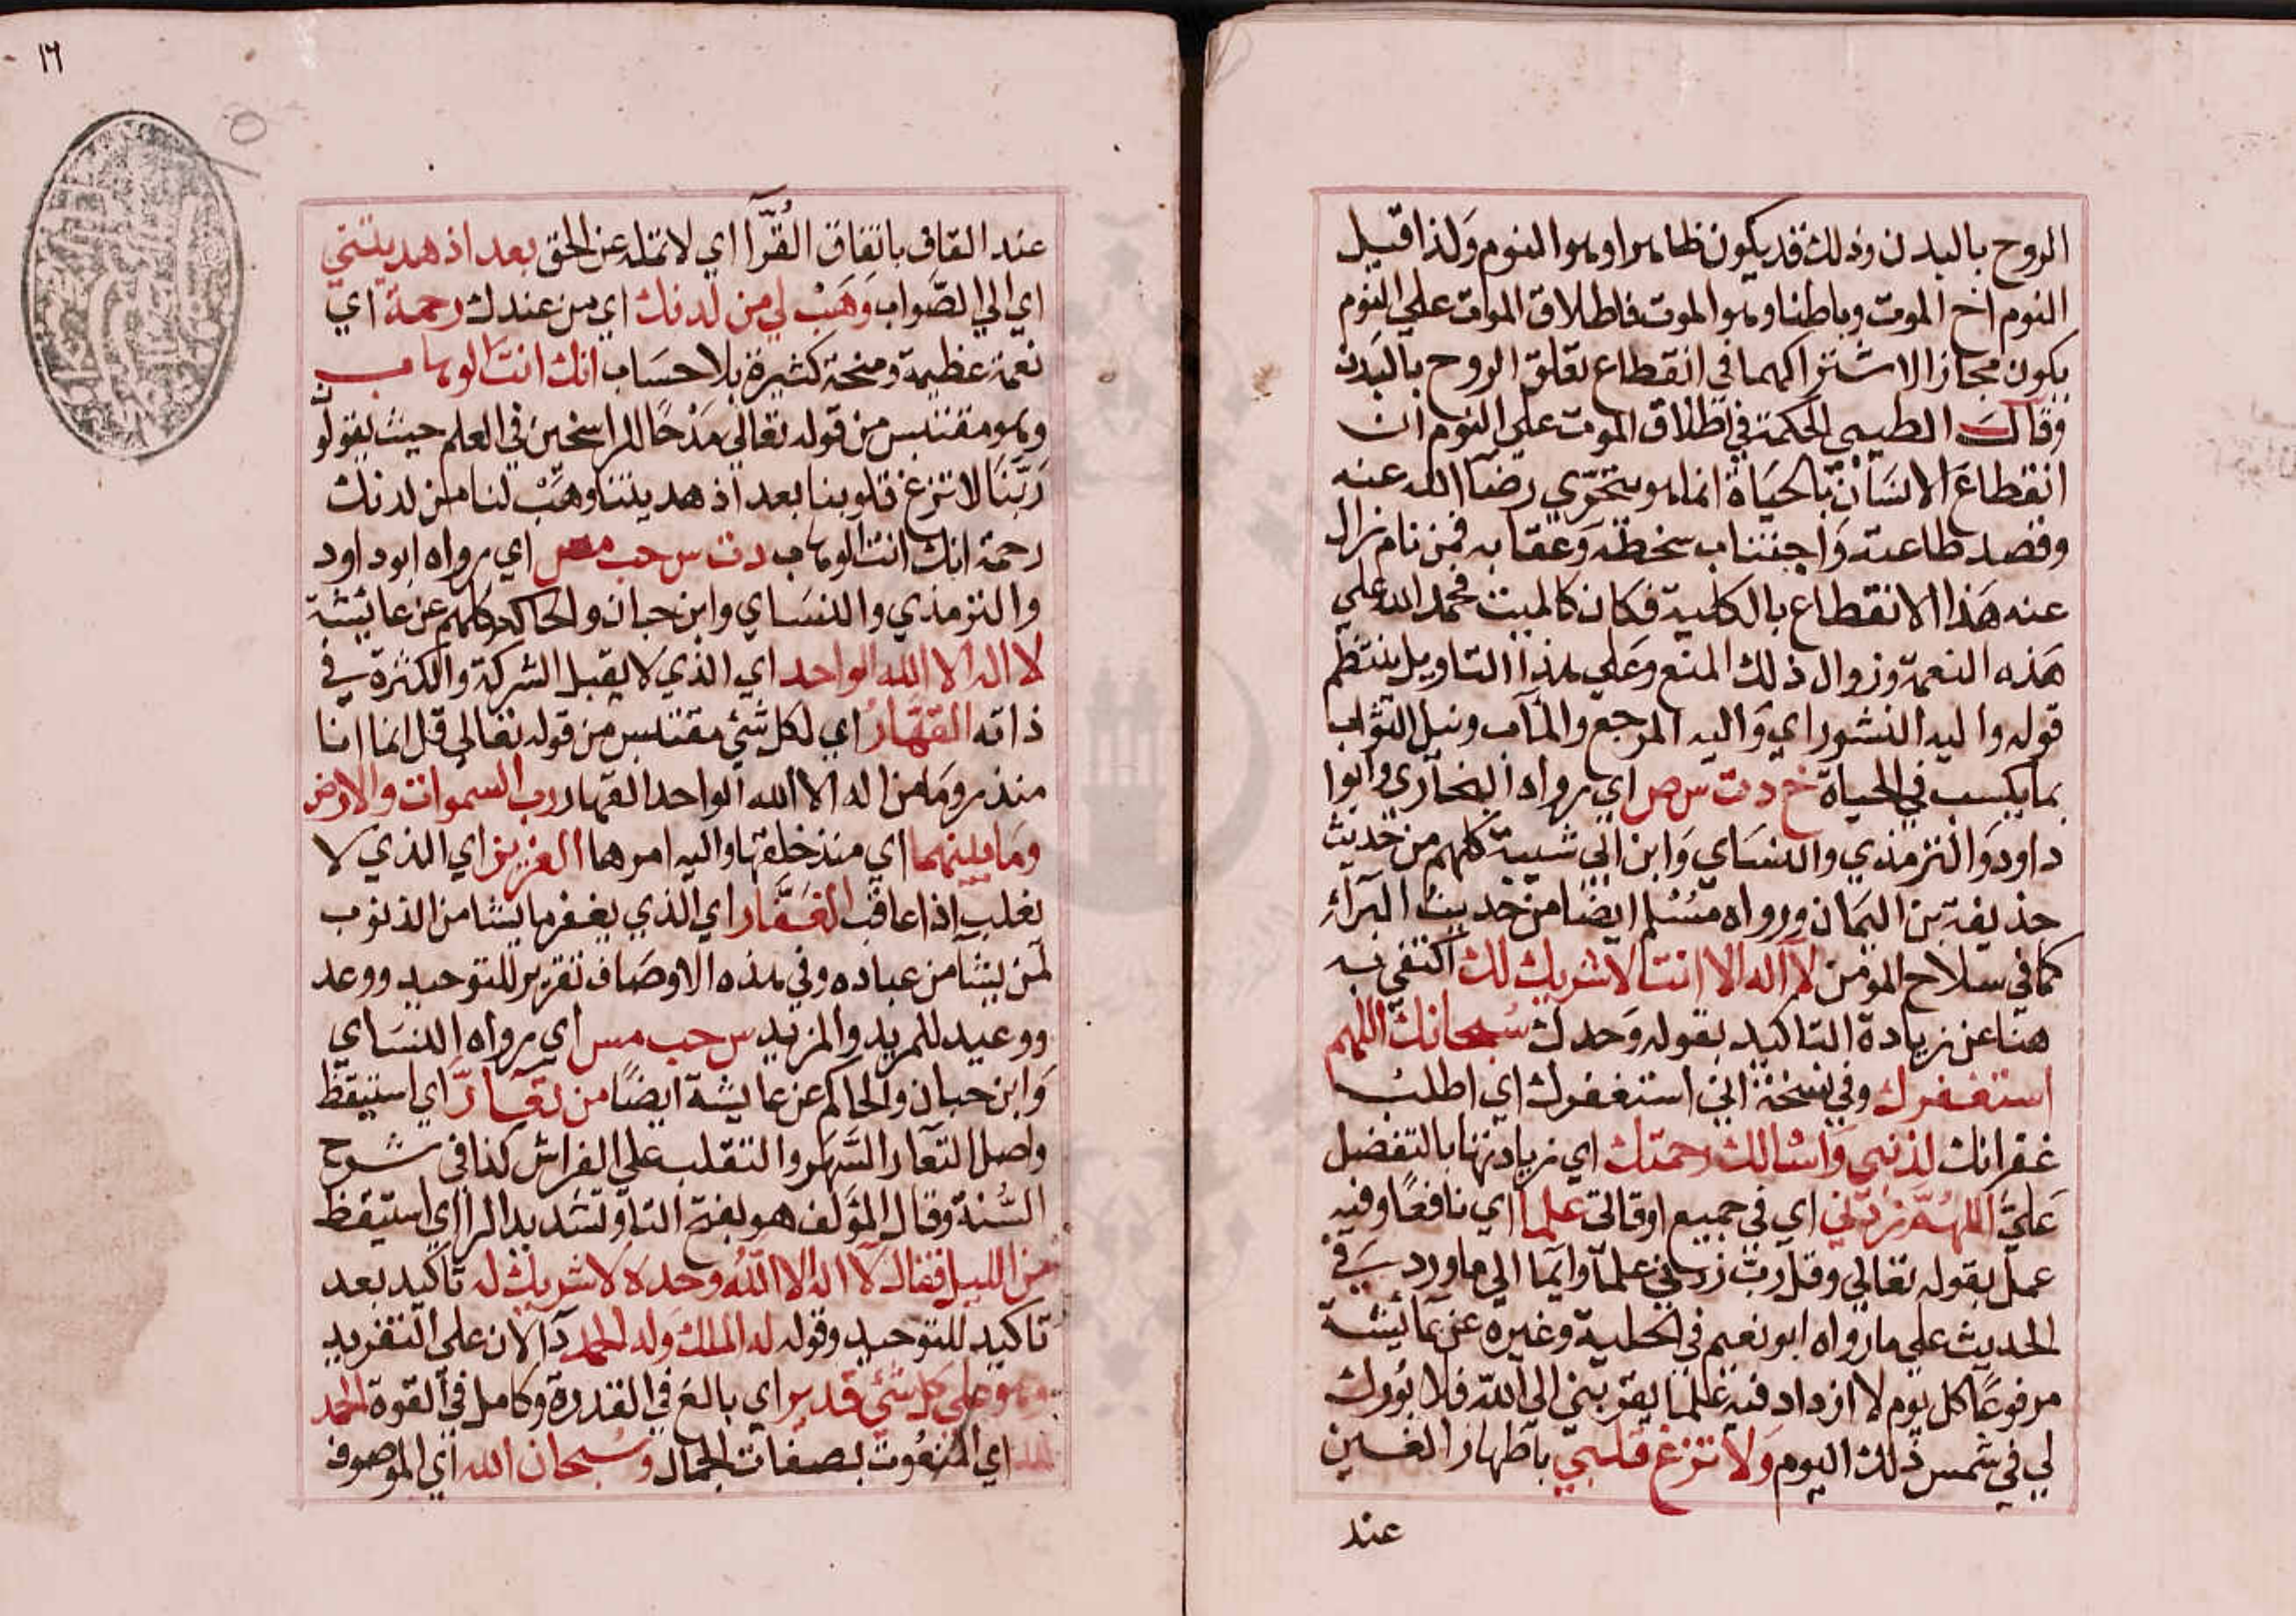 الروح بالبدن وذلك قد يكون ظاهرا وهو النوم ولذا قيل
النوم اخ الموت وباطنا وهو الموت فاطلاق الموت علي النوم
يكون مجازا لاشتراكهما في انقطاع تعلق الروح بالبدن
وقال الطيبي الحكمة في اطلاق الموت علي النوم ان
انقطاع الانسان بالحياة انما هو بتحري رضا الله عنه
وقصد طاعته واجتناب سخطه وعقابه فمن نام زال
عنه هذا الانقطاع بالكلية فكان كالميت فحمد الله علي
هذه النعمة وزوال ذلك المنع وعلي هذا التاويل ينتظم
قوله واليه النشور اي واليه المرجع والمآب ونيل الثواب
بما يكسب في الحياة خ د ت س مص اي رواه البخاري وابوا
داود والترمذي والنساي وابن ابي شيبة كلهم من حديث
حذيفة بن اليمان ورواه مسلم ايضا من حديث البرآء
كما في سلاح المؤمن لا اله الا انت لا شريك لك اكتفي به
هنا عن زيادة التاكيد بقوله وحدك سبحانك اللهم
استغفرك وفي نسخة اني استغفرك اي اطلب
غفرانك لذنبي واسالك رحمتك اي زيادتها بالتفضل
علي اللهم زدني اي في جميع اوقاتي علما اي نافعا وفيه
عمل بقوله تعالي وقل رب زدني علما وايما الي ما ورد في
الحديث علي ما رواه ابو نعيم في الحلية وغيره عن عائيشة
مرفوعا كل يوم لا ازداد فيه علما يقربني الي الله فلا بورك
لي في شمس ذلك اليوم ولا تزغ قلبي باظهار الغين
عند
١٦
عند القاف باتفاق القرآ اي لا تمله عن الحق بعد اذ هديتني
اي الي الصواب وهب لي من لدنك اي من عندك رحمة اي
نعمة عظيمة ومنحة كثيرة بلا حساب انك انت الوهاب
وهو مقتبس من قوله تعالي مدحا للراسخين في العلم حيث يقولون
ربنا لا تزغ قلوبنا بعد اذ هديتنا وهب لنا من لدنك
رحمة انك انت الوهاب د ت س حب مس اي رواه ابو داود
والترمذي والنساي وابن حبان والحاكم وكلهم عن عايشة
لا اله الا الله الواحد اي الذي لا يقبل الشركة والكثرة في
ذاته القهار اي لكل شئ مقتبس من قوله تعالي قل انما انا
منذر وما من اله الا الله الواحد القهار رب السموات والارض
وما بينهما اي منذ خلقها واليه امرهما العزيز اي الذي لا
يغلب اذا عاقب الغفار اي الذي يغفر ما يشا من الذنوب
لمن يشآ من عباده وفي هذه الاوصاف تقرير للتوحيد ووعد
ووعيد للمريد والمزيد س حب مس اي رواه النساي
وابن حبان والحاكم عن عايشة ايضا من تعار اي استيقظ
واصل التعار السهر والتقلب علي الفراش كذا في شرح
السنة وقال المؤلف هو بفتح التا وتشديد الرا اي استيقظ
من الليل فقال لا اله الا الله وحده لا شريك له تاكيد بعد
تاكيد للتوحيد وقوله له الملك وله الحمد دآلان علي التفريد
وهو علي كل شئ قدير اي بالغ في القدرة وكامل في القوة الحمد
لله اي المنعوت بصفات الجمال وسبحان الله اي الموصوف